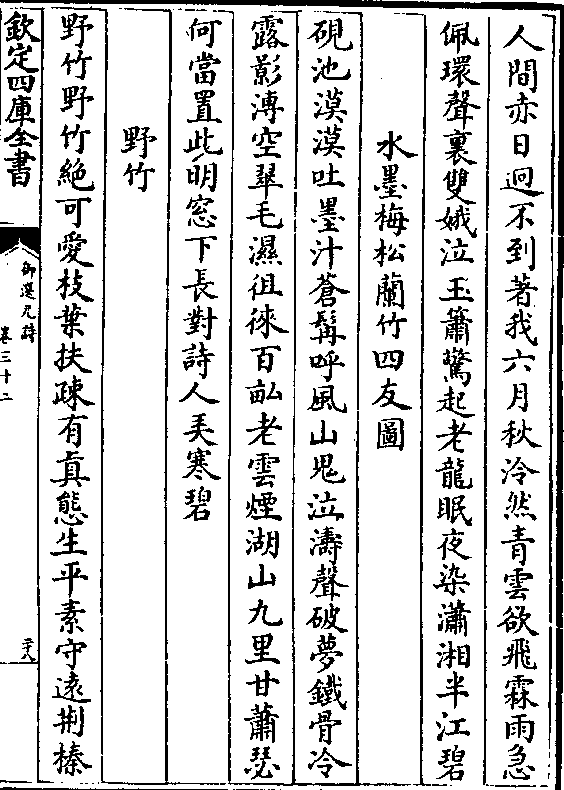 人間赤日迥不到著我六月秋泠然青雲欲飛霖雨急
佩環聲裏雙娥泣玉簫驚起老龍眠夜染瀟湘半江碧
水墨梅松蘭竹四友圖
硯池漠漠吐墨汁蒼髯呼風山鬼泣濤聲破夢鐵骨冷
露影漙空翠毛濕徂徠百畝老雲煙湖山九里甘蕭瑟
何當置此明窓下長對詩人美寒碧
野竹
野竹野竹絶可愛枝葉扶疎有真態生平素守遠荆榛
欽定四庫全書
御選元詩
卷三十二
二十八